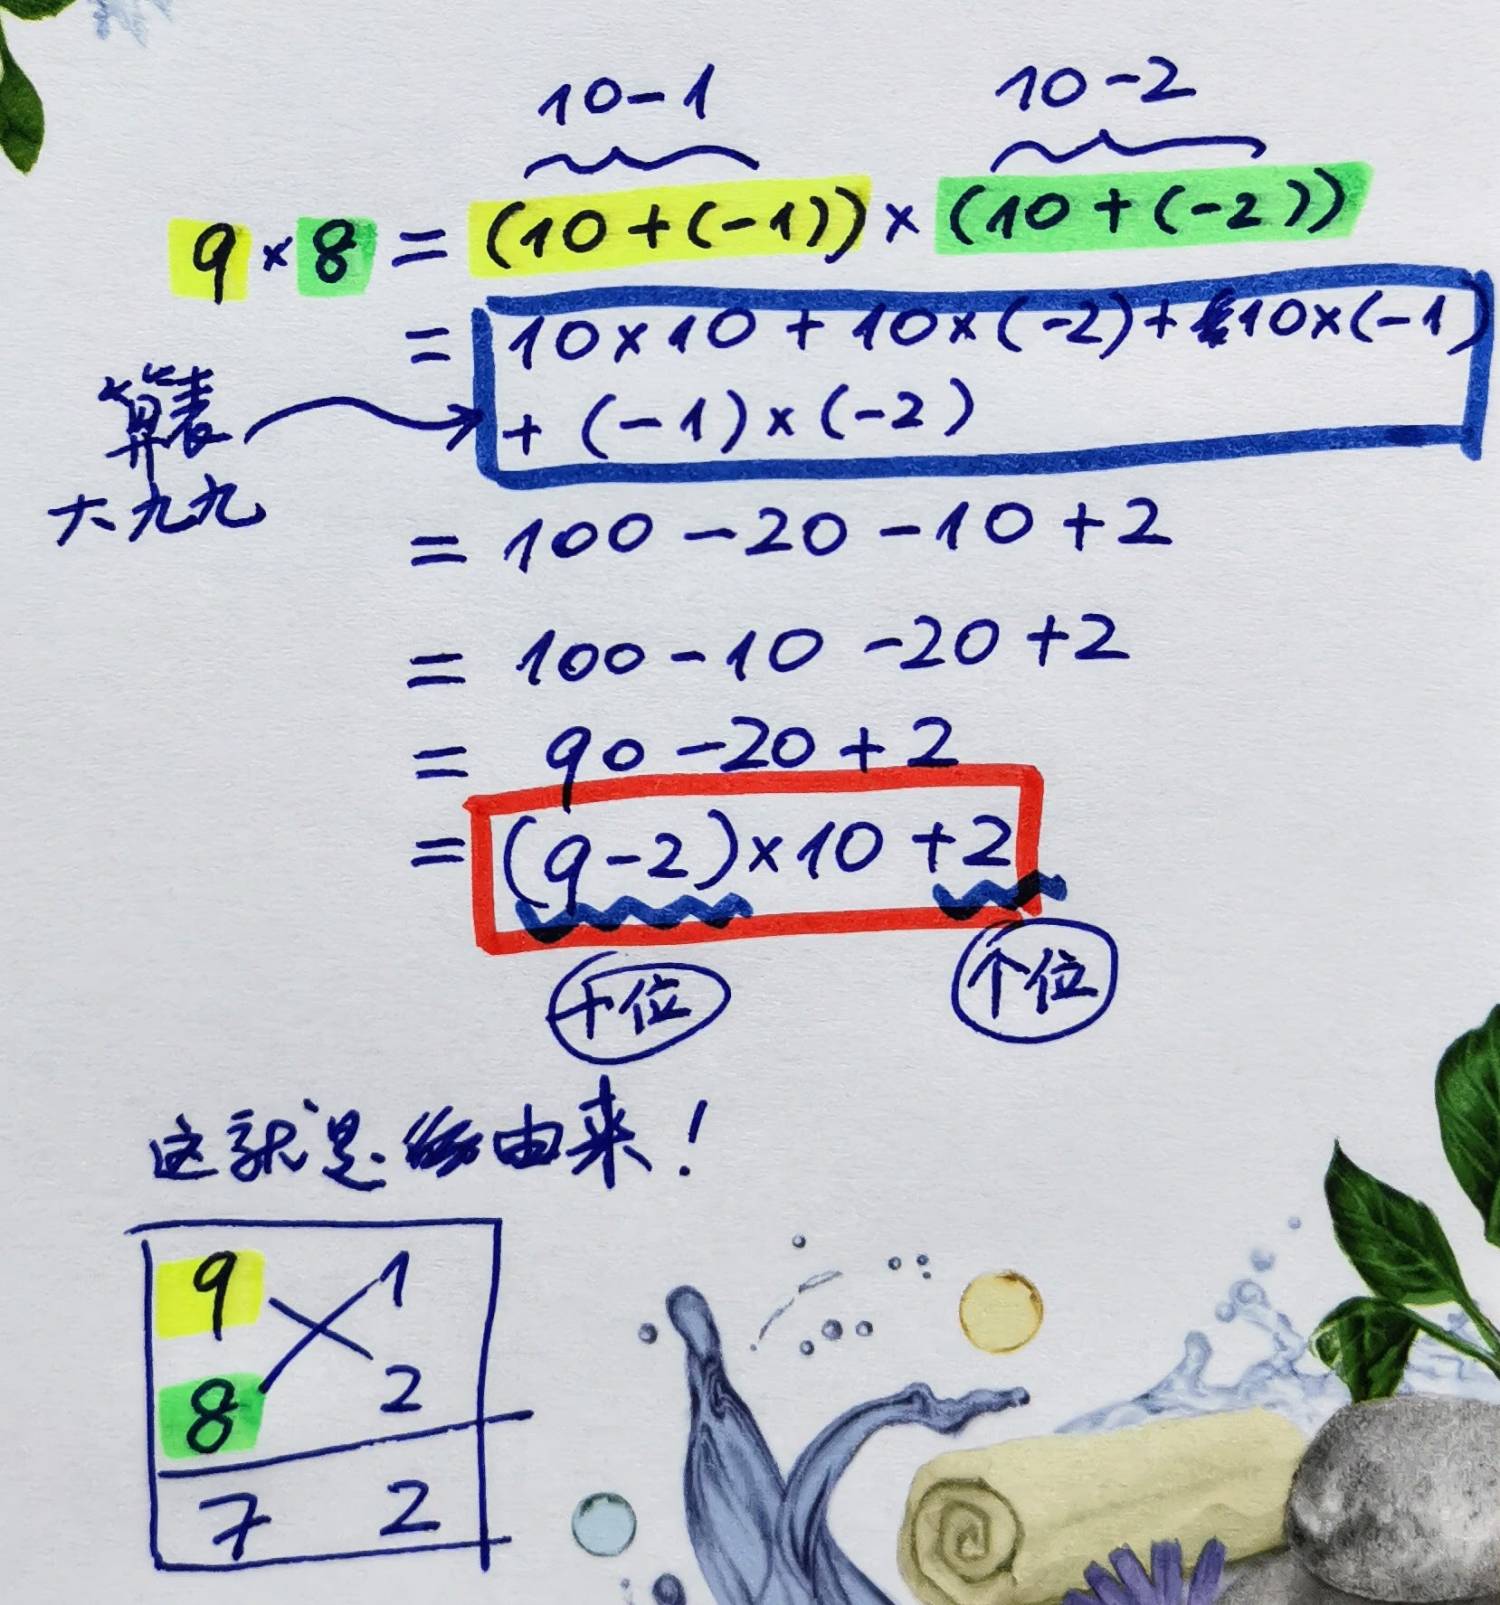 10-1 10-2
9×8 = (10+(-1))×(10+(-2))
= 10×10+10×(-2)+10×(-1)
+(-1)×(-2)
算表
大九九
= 100-20-10+2
= 100-10-20+2
= 90-20+2
= (9-2)×10+2
十位 个位
这就是由来!
9 1
8 2
7 2